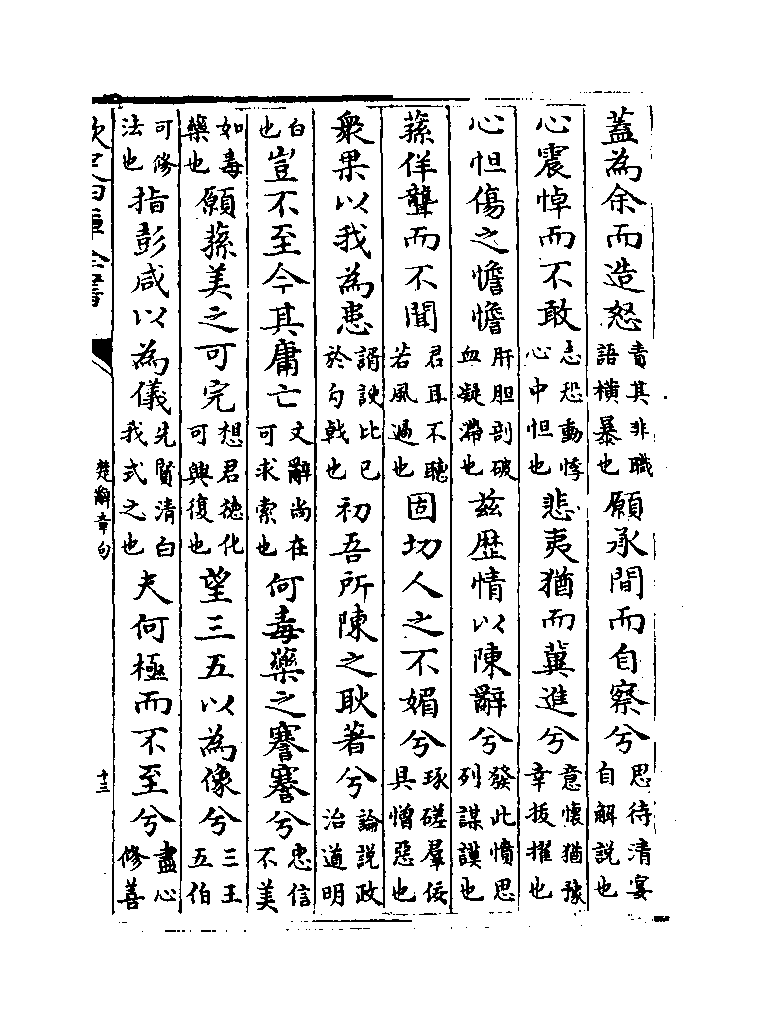 蓋為余而造怒責其非職語橫暴也願承間而自察兮思待清宴自解說也
心震悼而不敢志恐動悸心中怛也悲夷猶而冀進兮意懷猶豫幸拔擢也
心怛傷之憺憺肝胆剖破血凝滯也茲歷情以陳辭兮發此憤思列謀謨也
蓀佯聾而不聞君耳不聽若風過也固切人之不媚兮琢磋羣佞具憎惡也
衆果以我為患諂諛比己於勾戟也初吾所陳之耿著兮論說政治道明
白也豈不至今其庸亡文辭尚在可求索也何毒藥之謇謇兮忠信不美
如毒藥也願蓀美之可完想君德化可興復也望三五以為像兮三王五伯
可修法也指彭咸以為儀先賢清白我式之也夫何極而不至兮盡心修善
欽定四庫全書
楚辭章句
十三